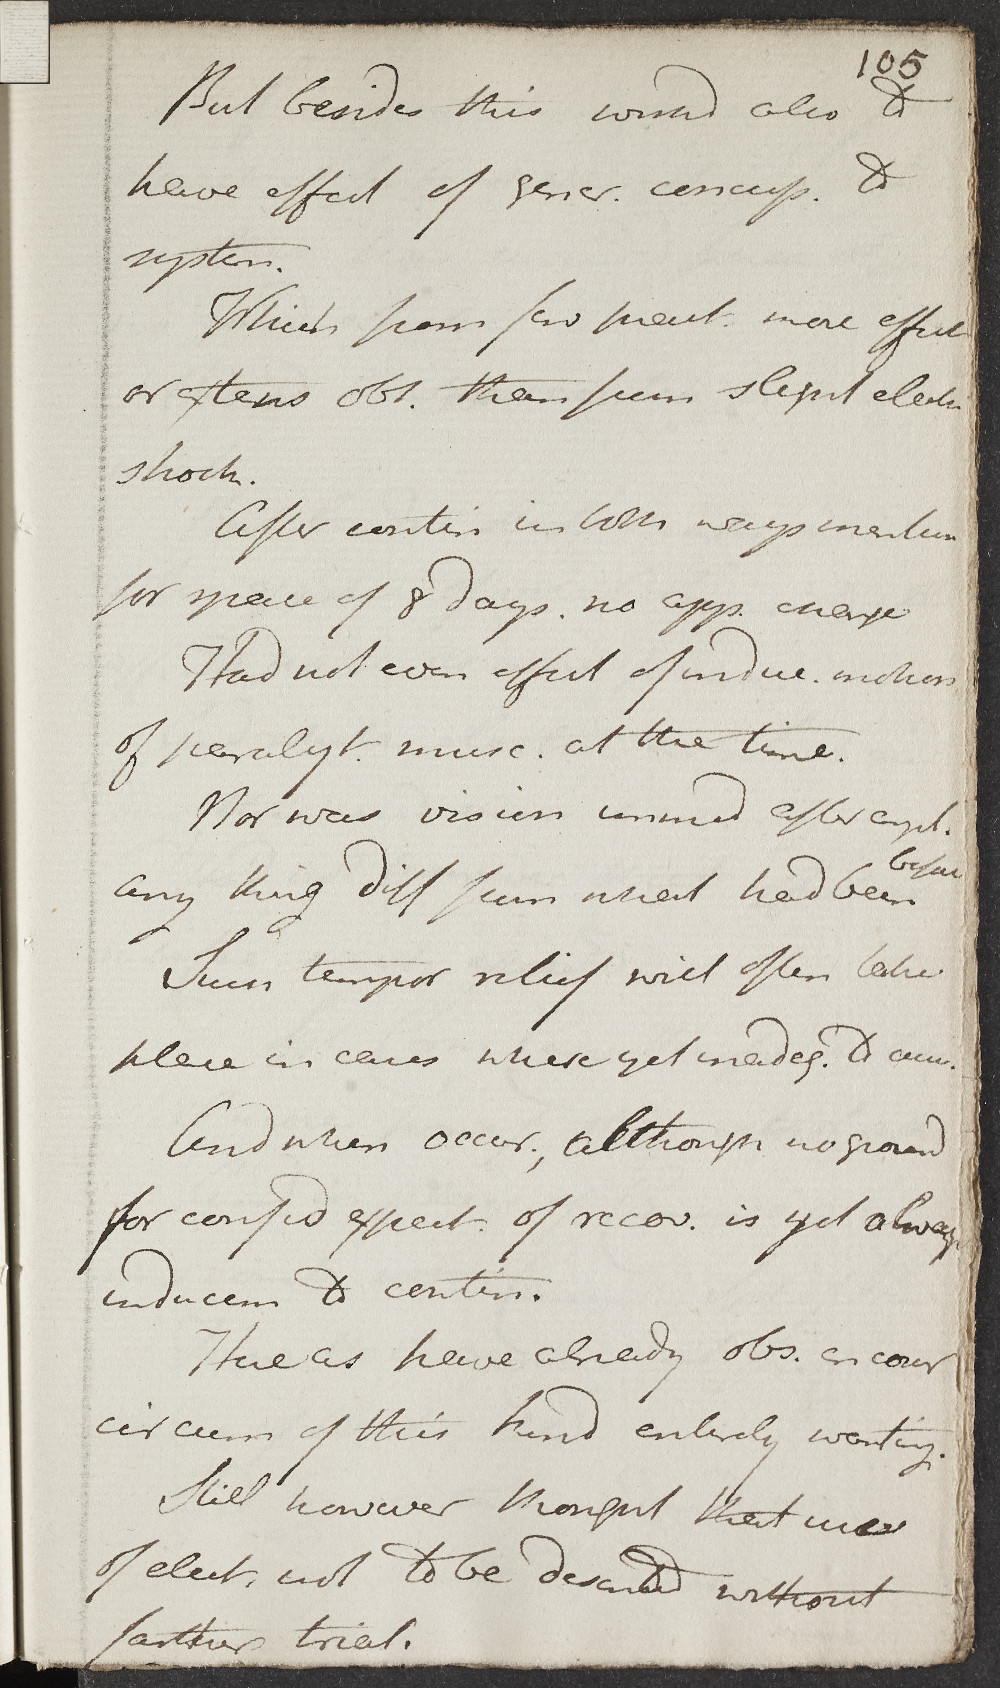 105
But besides this wishd also to
have effect of gener. concuss. to
system.
Which from few pract. more effect
or extens obt. than from slight electr
shock.
After contin in both ways mention
for space of 8 days. no app. change
Had not even effect of induc. motion
of paralyt. musc. at the time.
Nor was vision immed after appl.
before
any thing diff from what had been
Such tempor relief will often take
place in cases where yet inadeq. to cure.
And when occur., although no ground
for confid expect. of recov. is yet always
inducem to contin.
Here as have already obs. encour
circum of this kind entirely wanting.
Still however thought that use
of elect. not to be deserted without
farther trial.